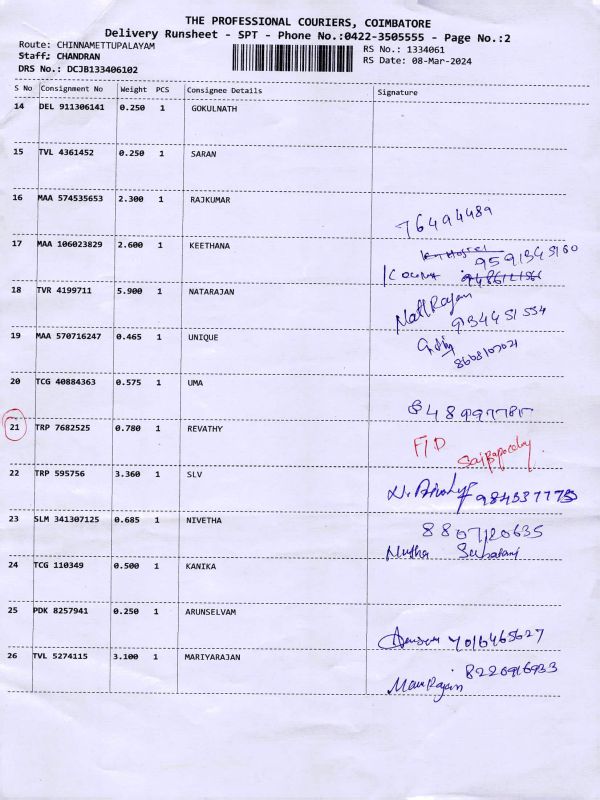 THE PROFESSIONAL COURIERS, COIMBATORE
Delivery Runsheet - SPT - Phone No.:0422-3505555 - Page No.:2
Route: CHINNAMETTUPALAYAM RS No.: 1334061
Staff: CHANDRAN RS Date: 08-Mar-2024
DRS No.: DCJB133406102
S No Consignment No Weight PCS Consignee Details Signature
14 DEL 911306141 0.250 1 GOKULNATH
15 TVL 4361452 0.250 1 SARAN
16 MAA 574535653 2.300 1 RAJKUMAR
76494489
17 MAA 106023829 2.600 1 KEETHANA
18 TVR 4199711 5.900 1 NATARAJAN
NattRajan
19 MAA 570716247 0.465 1 UNIQUE
20 TCG 40884363 0.575 1 UMA
21 TRP 7682525 0.780 1 REVATHY
F/D
22 TRP 595756 3.360 1 SLV
23 SLM 341307125 0.685 1 NIVETHA
8807120635
24 TCG 110349 0.500 1 KANIKA
25 PDK 8257941 0.250 1 ARUNSELVAM
7016465627
26 TVL 5274115 3.100 1 MARIYARAJAN
8220916933